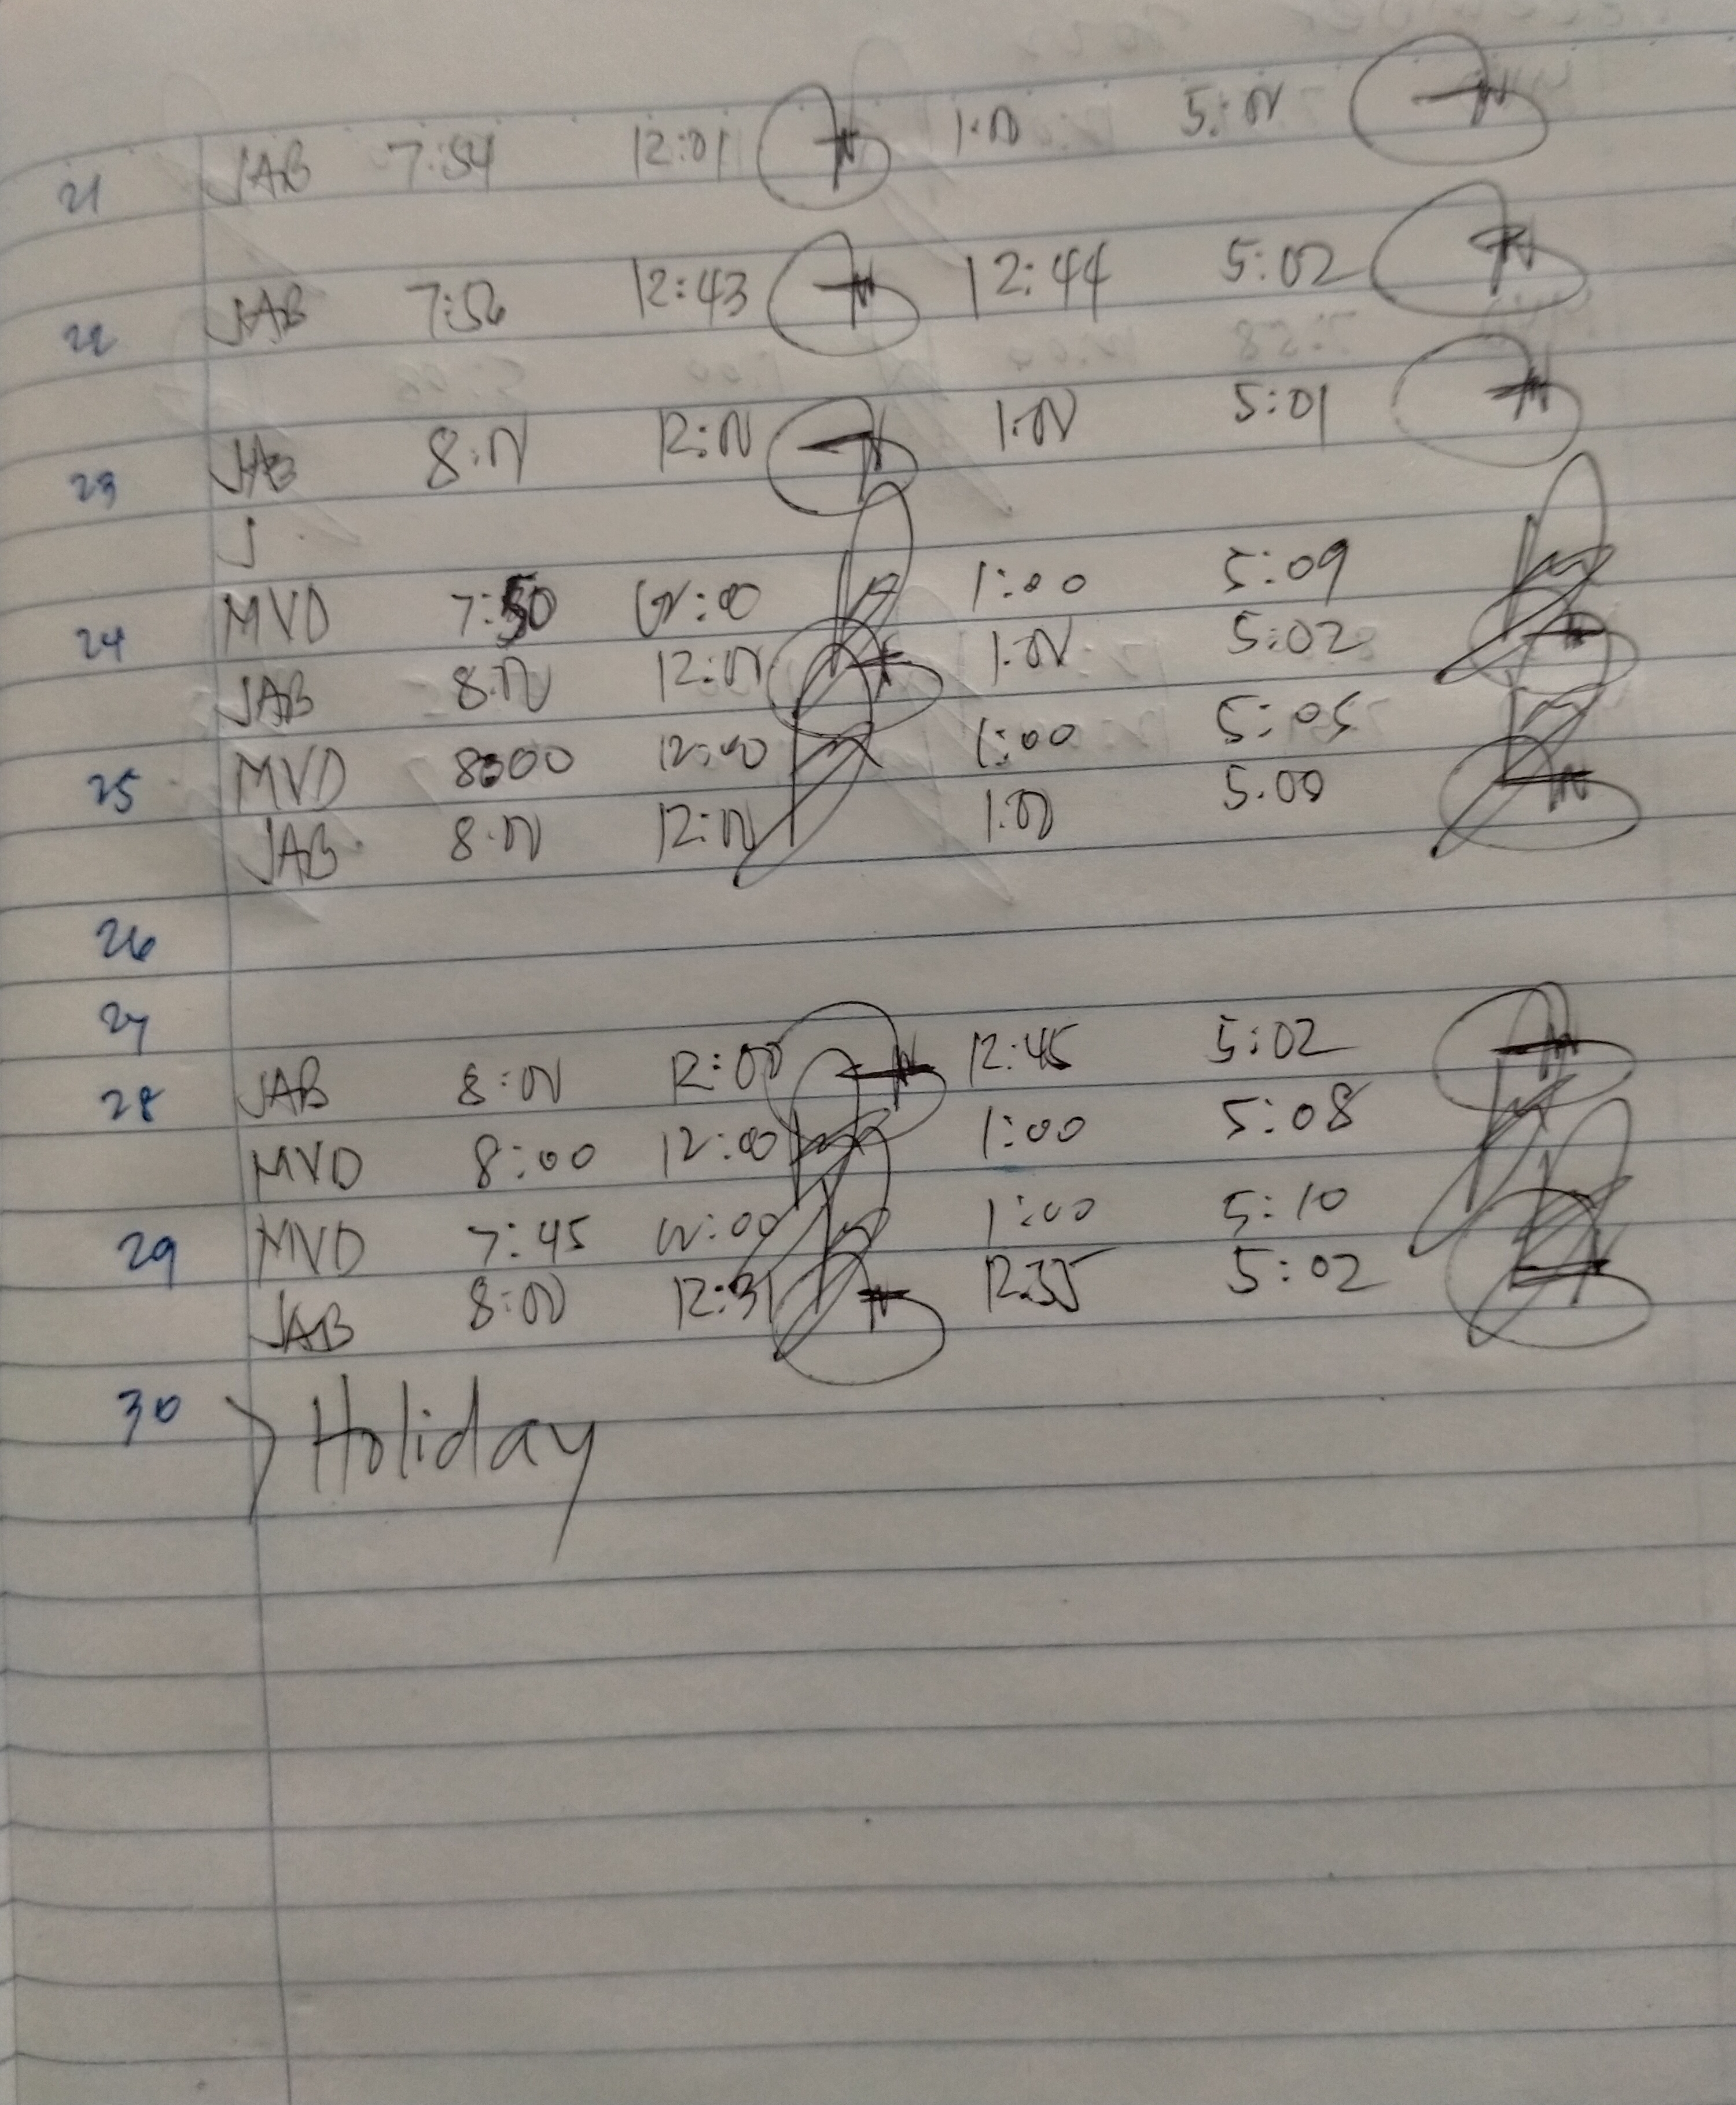 21 JAB 7:54 12:01 1:00 5:00
22 JAB 7:56 12:43 12:44 5:02
23 JAB 8:00 12:00 1:00 5:01
J
24 MVD 7:50 12:00 1:00 5:09
JAB 8:00 12:00 1:00 5:02
25 MVD 8:00 12:00 1:00 5:05
JAB 8:00 12:00 1:00 5:00
26
27
28 JAB 8:00 12:00 12:45 5:02
MVD 8:00 12:00 1:00 5:08
29 MVD 7:45 12:00 1:00 5:10
JAB 8:00 12:31 12:35 5:02
30 Holiday